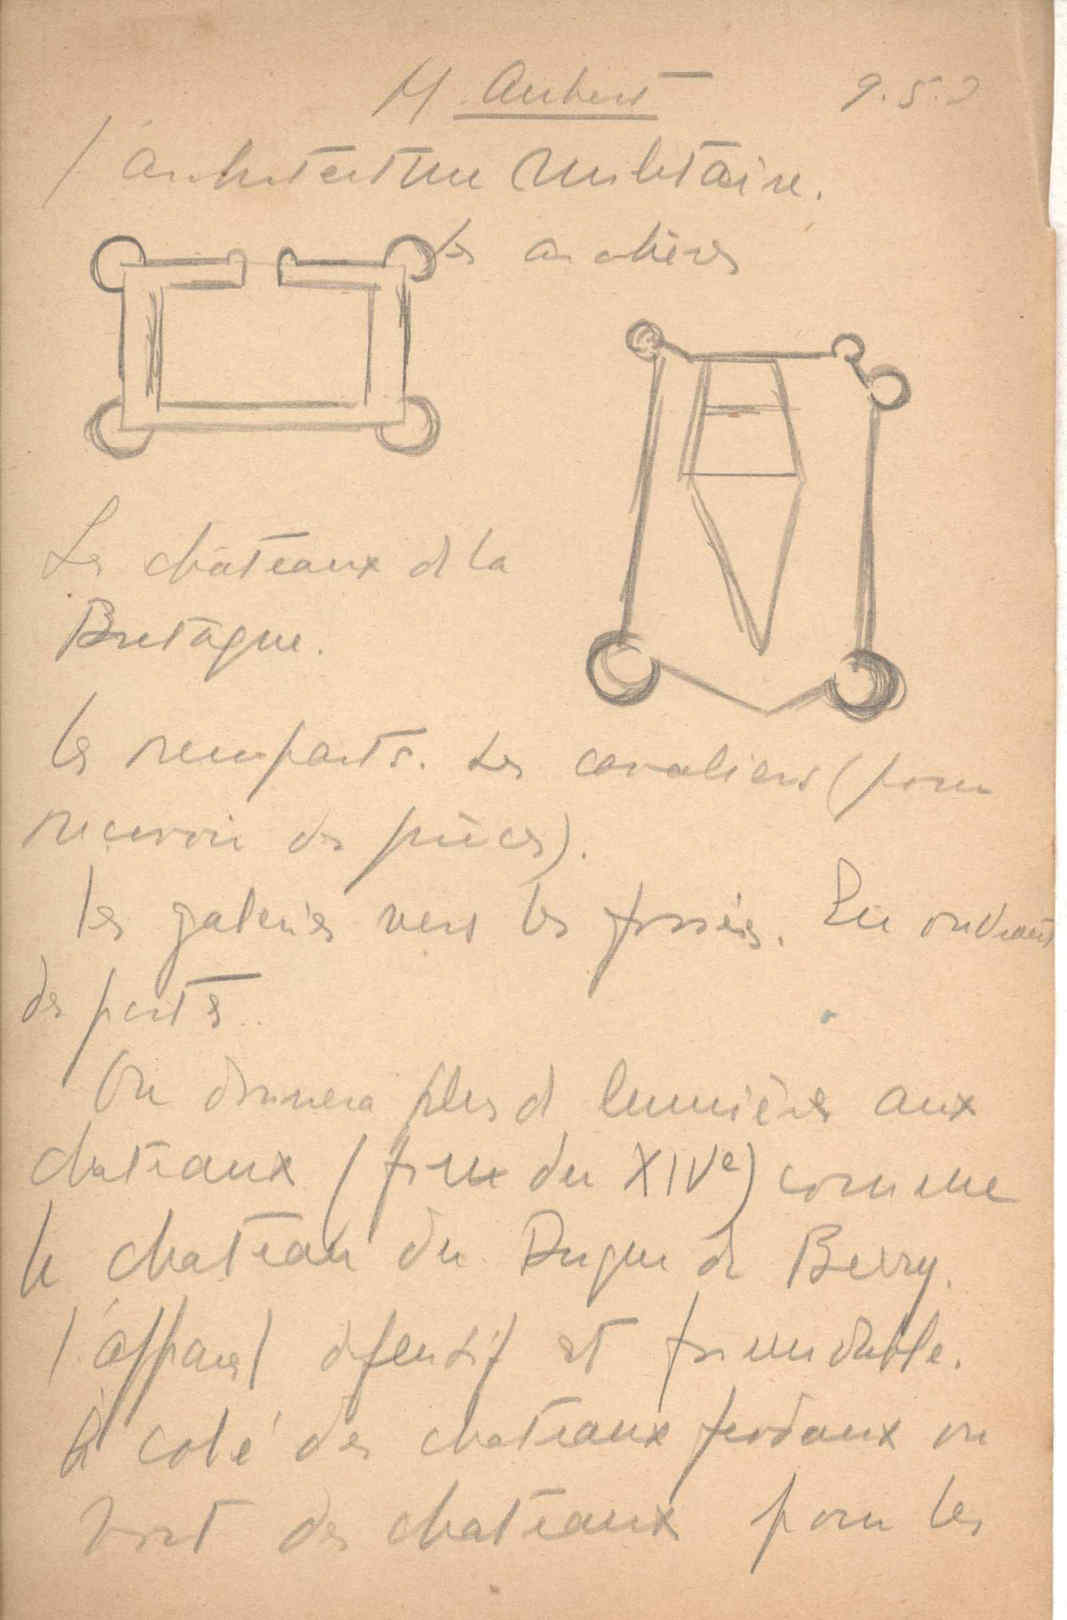 M. Aubert 9.5.
l'architecture militaire.
Les archères
Les châteaux d la
Bretagne.
les remparts. Les cavaliers (pour
recevoir des pièces).
les galeries vers les fossés. En ouvrant
des portes.
On donnera plus d lumières aux
chateaux (fin du XIVe) comme
le chateau du Duque de Berry.
l'appareil défensif est formidable.
A coté des chateaux feodaux on
voit des chateaux pour les